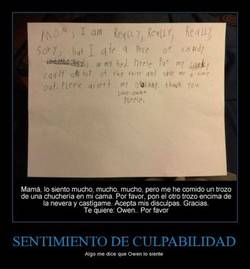 MOM, I am REALLY, REALLY, REALLY
SORY, but I ate a of candy
in my bed. Please Put my
candy of the and give me a time
out. Please accept my thank you.
Please.
Mamá, lo siento mucho, mucho, mucho, pero me he comido un trozo
de una chuchería en mi cama. Por favor, pon el otro trozo encima de
la nevera y castígame. Acepta mis disculpas. Gracias.
Te quiere: Owen.. Por favor
SENTIMIENTO DE CULPABILIDAD
Algo me dice que Owen lo siente